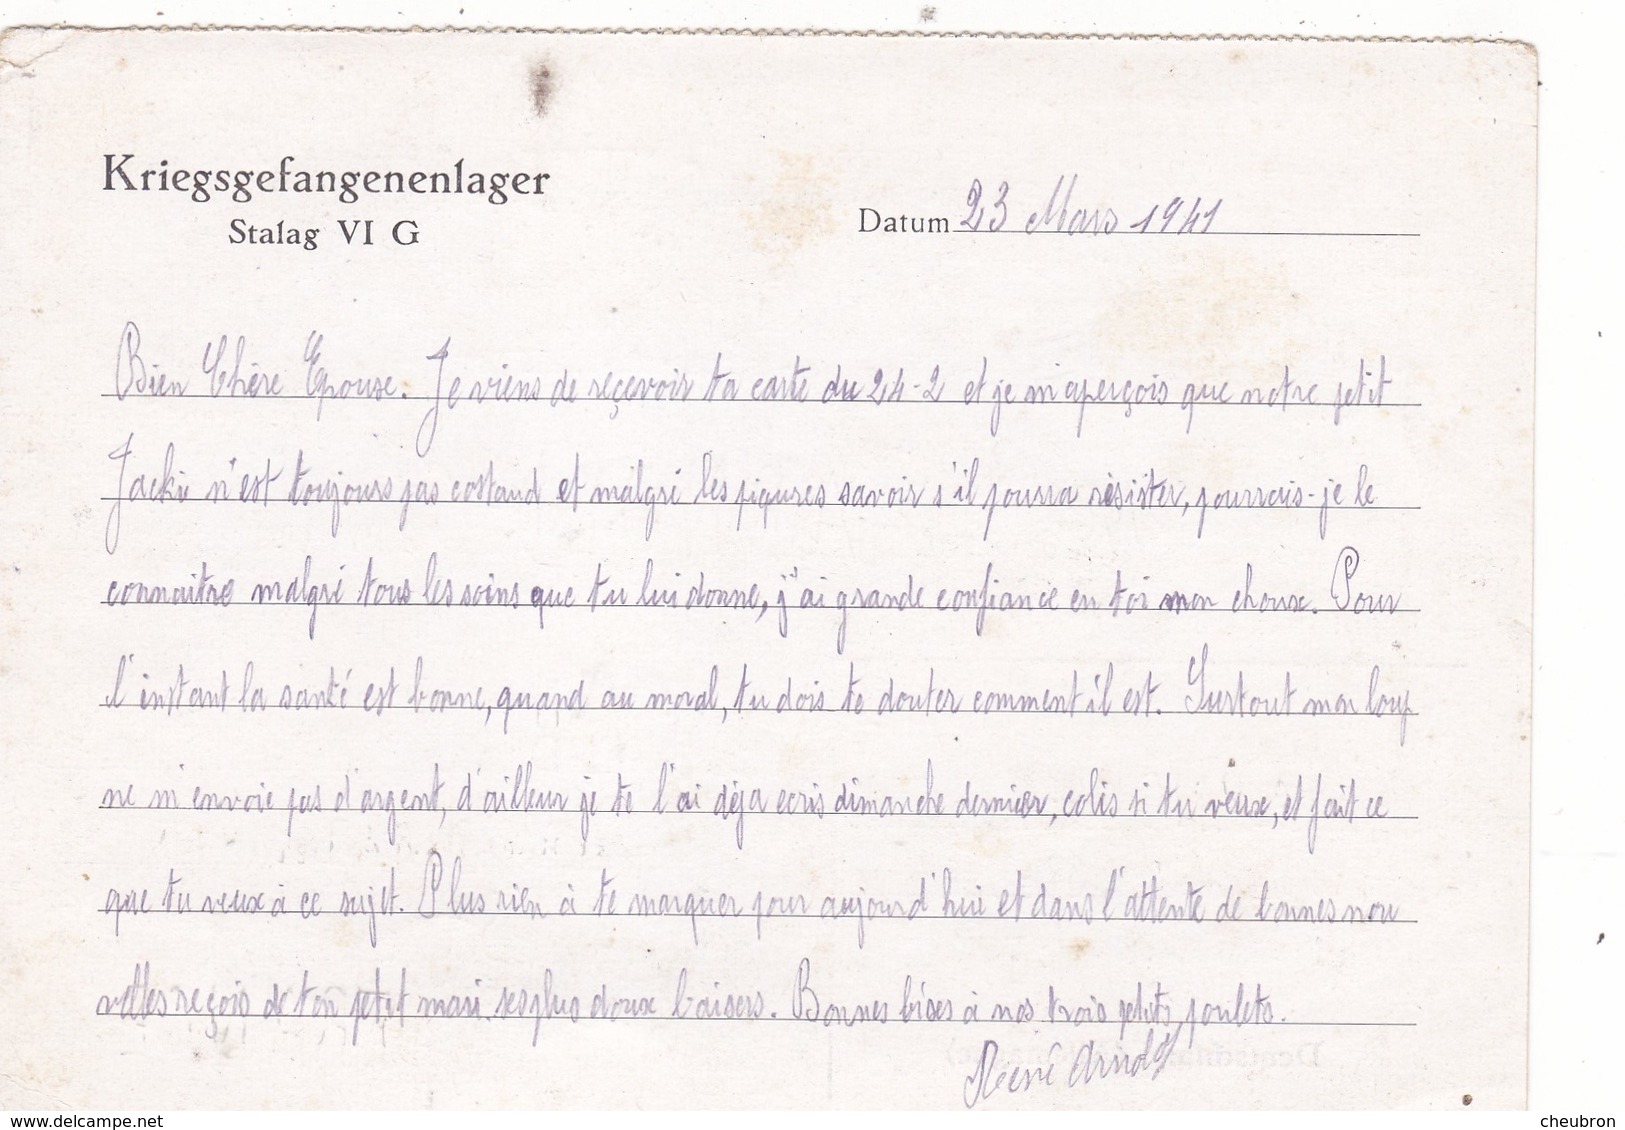 Kriegsgefangenenlager
Stalag VI G
Datum 23 Mars 1941
Bien Chère Epouse. Je viens de reçevoir ta carte du 24-2 et je m'aperçois que notre petit
Jacki n'est toujours pas costaud et malgré les piqures savoir s'il pourra résister, pourrais-je le
connaitre malgré tous les soins que tu lui donne, j'ai grande confiance en toi mon choux. Pour
l'instant la santé est bonne, quand au moral, tu dois te douter comment il est. Surtout mon loup
ne m'envoie pas d'argent, d'ailleur je te l'ai déja ecris dimanche dernier, colis si tu veux, et fait ce
que tu veux à ce sujet. Plus rien à te marquer pour aujourd'hui et dans l'attente de bonnes nou
velles reçois de ton petit mari ses plus doux baisers. Bonnes bises à nos trois petits poulets.
René
cheubron.